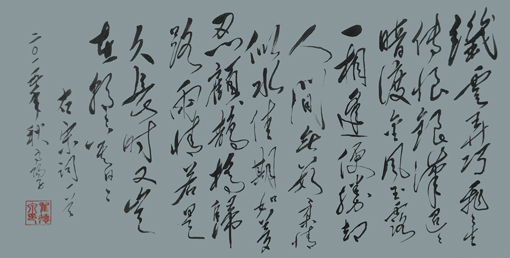 纖雲弄巧飛星
传恨銀漢迢〻
暗渡金風玉露
一相逢便勝却
人間無數柔情
似水佳期如夢
忍顧鵲橋歸
路兩情若是
久長時又豈
在朝〻暮〻
右宋词一首
二〇一五年秋